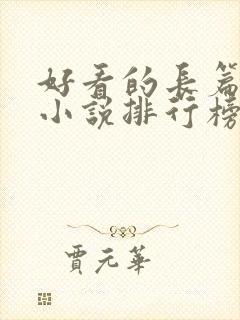 好看的長篇
小説排行榜
賈元華